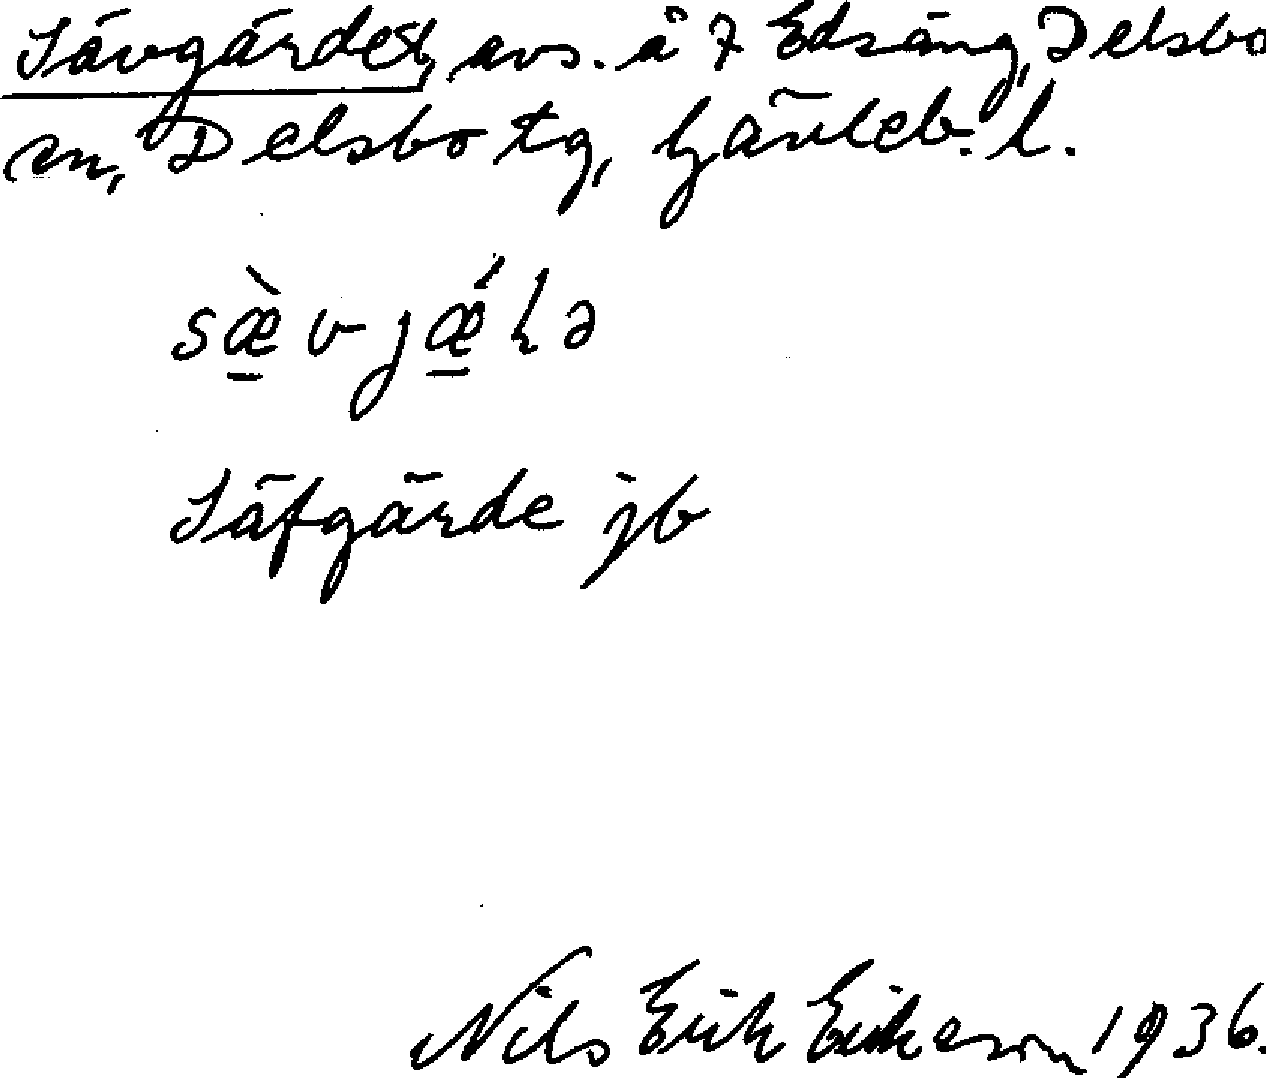 Sävgärdet, avs. å 7 Edsäng, Delsbo
sn, Delsbo tg, Gävleb. l.
sæ̱̀vjǽ̱ɽə
Säfgärde jb
Nils Erik Erikson 1936.